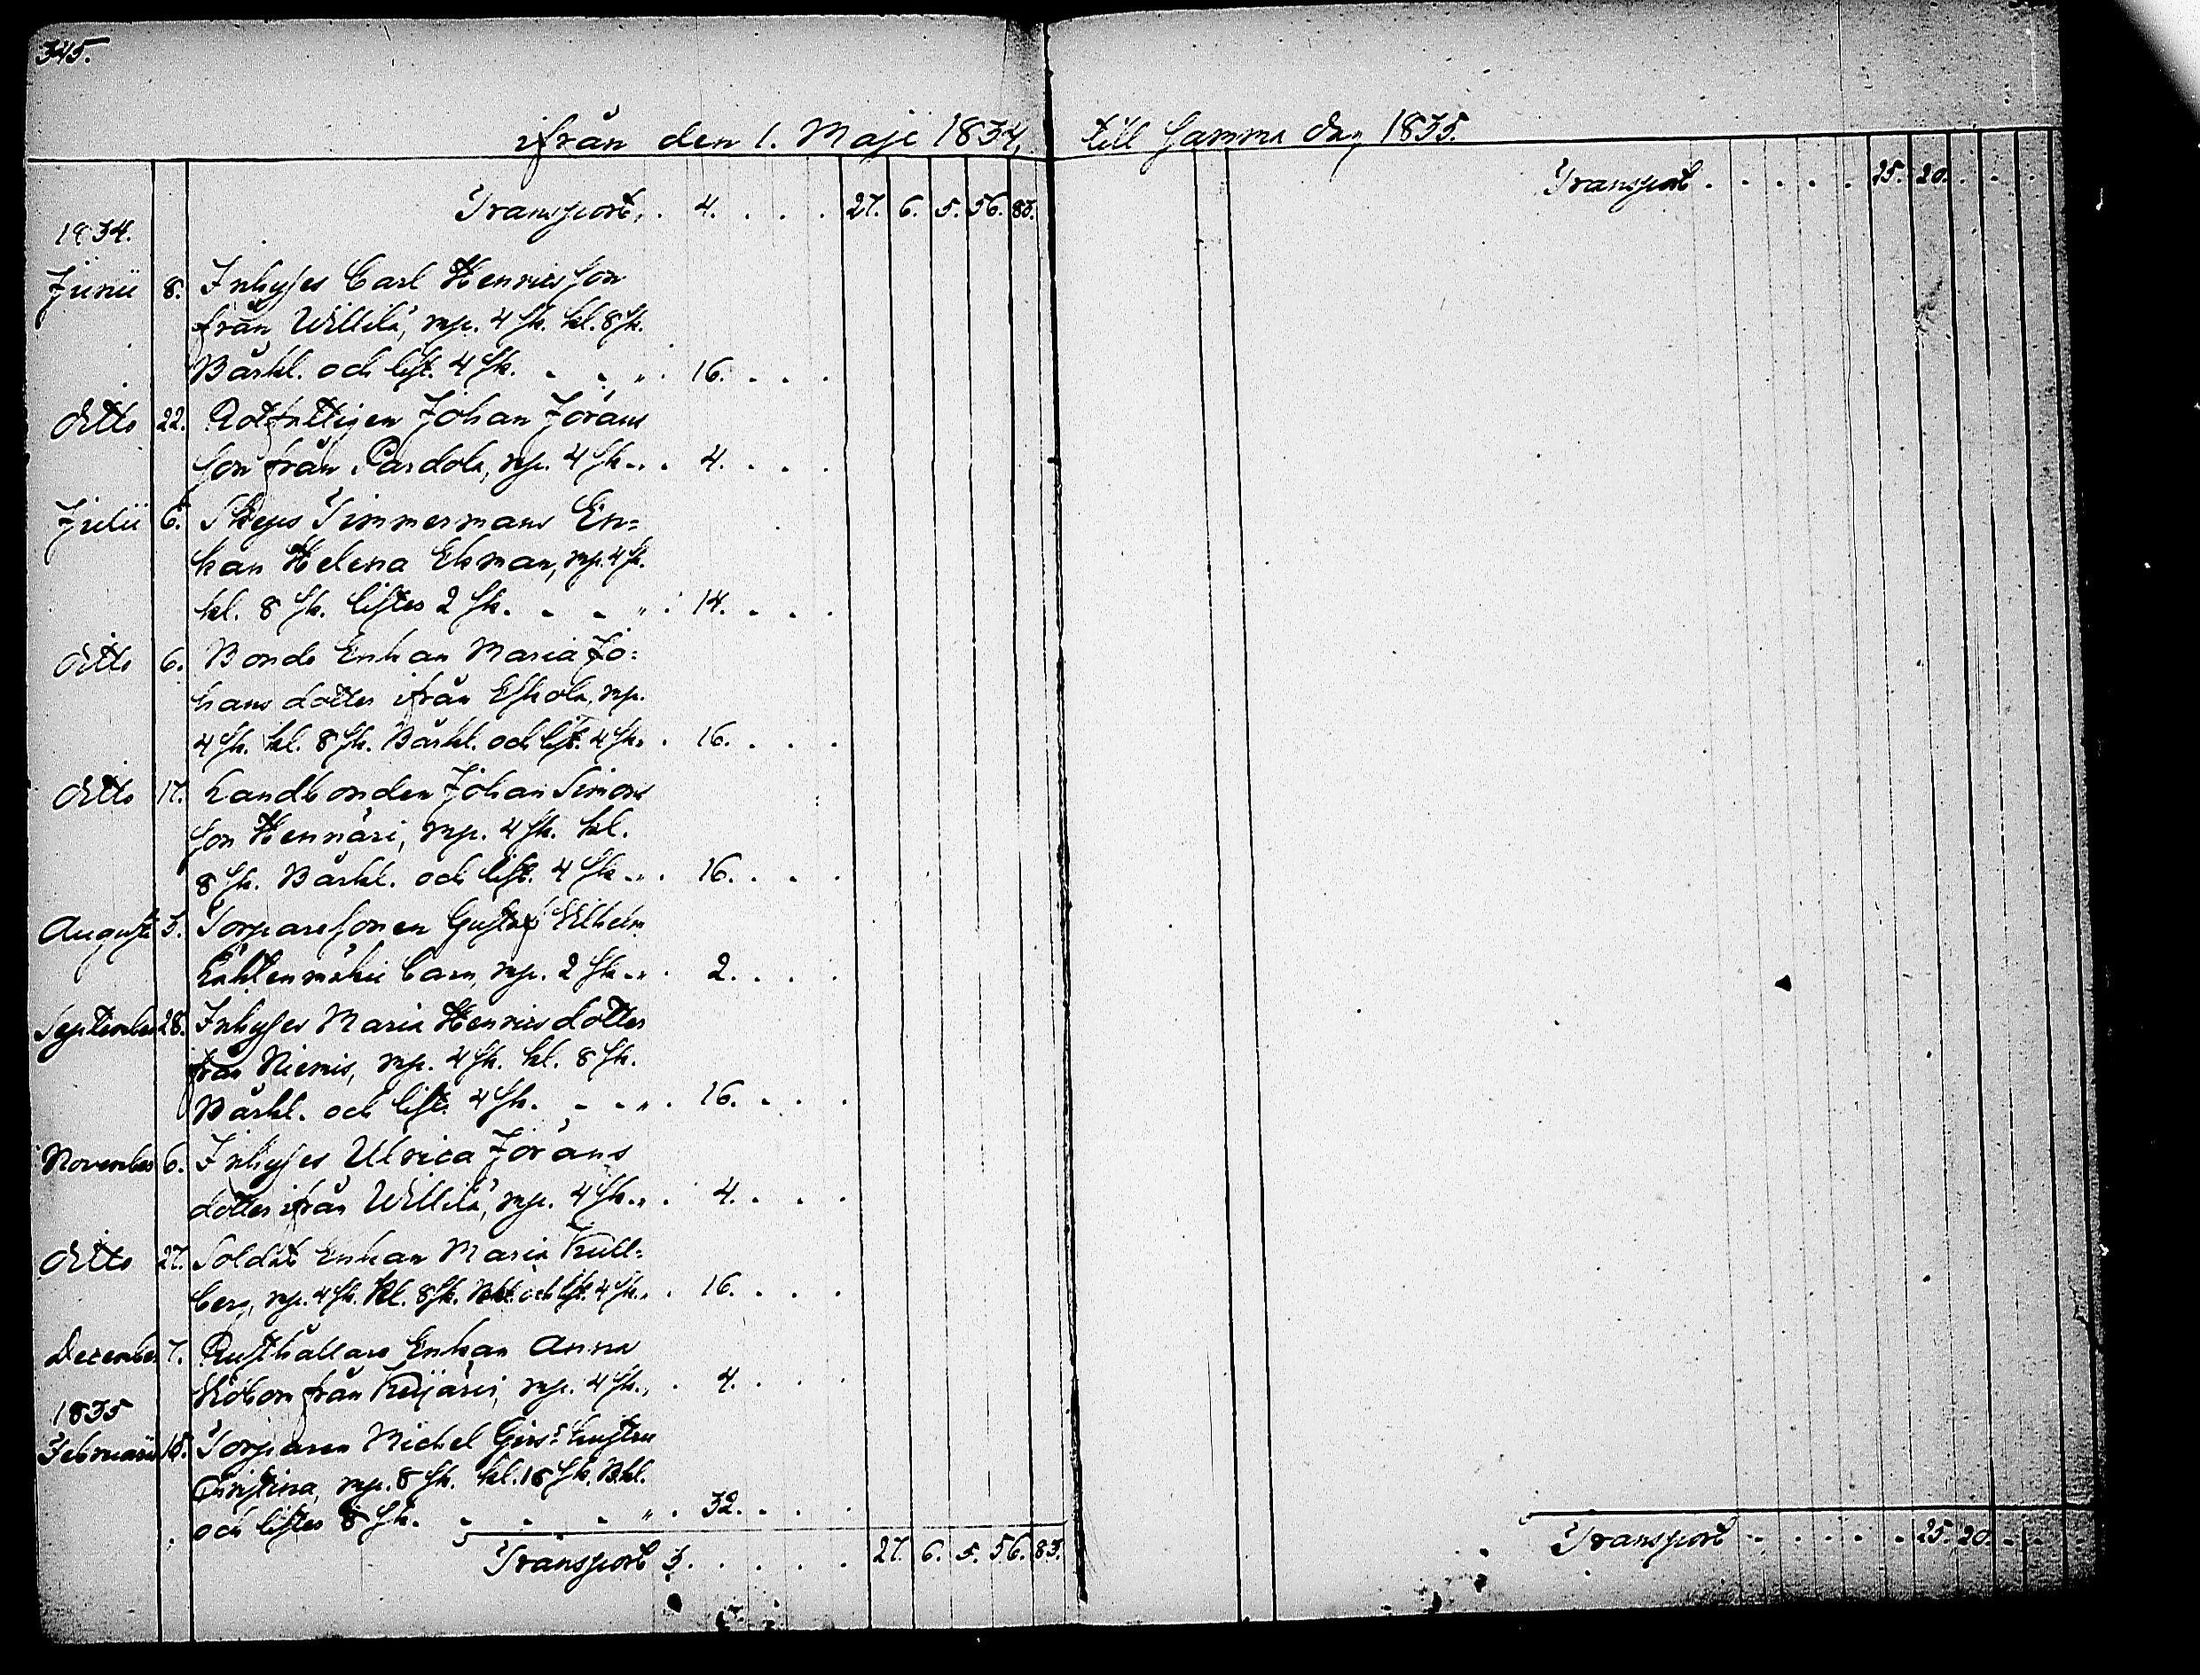 345.
ifrån den 1. Maji 1834, till samma dag 1835.
Transport, . 4. . . . 27. 6. 5. 56. 83.
1834.
Junii 8. Inhyses Carl Henricsson
från Willilä, mp. 4 sk. kl. 8 sk.
Bårkl. och lift. 4 sk. - - „ . 16. . . .
Ditto 22. Rotfattigen Johan Jörans
son från Pardola, mp. 4 sk. „ . 4. . . .
Julii 6. Skeps Timmermans En=
kan Helena Ekman, mp. 4 sk.
kl. 8 sk. liftes 2 sk. - - „ . 14. . . .
Ditto 6. Bonde Enkan Maria Jo=
hans dotter ifrån Eskola, mp.
4 sk. kl. 8 sk. Bårkl. och lift. 4 sk. . 16. . . .
Ditto 17. Landbonden Johan Simons
son Hennäri, mp. 4 sk. kl.
8 sk. Bårkl. och lift. 4 sk. „ . 16. . . .
Augusti 3. Torparesonen Gustaf Wilhelm
barn, mp. 2 sk. „ . 2. . . .
September 28. Inhyses Maria Henricsdotter
från Niemis, mp. 4 sk. kl. 8 sk.
Bårkl. och lift. 4 sk. - - „ . 16. . . .
November 6. Inhyses Ulrica Jörans
dotter ifrån Willilä, mp. 4 sk. „ . 4. . . .
Ditto 27. Soldat Enkan Maria Kull=
berg, mp. 4 sk. kl. 8 sk. Bkl. och lift. 4 sk. . 16. . . .
December 7. Rusthållare Enkan Anna
från mp. 4 sk. „ . 4. . . .
1835
Februarii 15. Torparen Michel hustru
Christina, mp. 8 sk. kl. 16 sk. Bkl.
och liftes 8 sk. - - - „ . 32. . . .
Transport 3. . . . . 27. 6. 5. 56. 83.
Transport . . . . . 25. 20. . . .
Transport . . . . . 25. 20. . . .